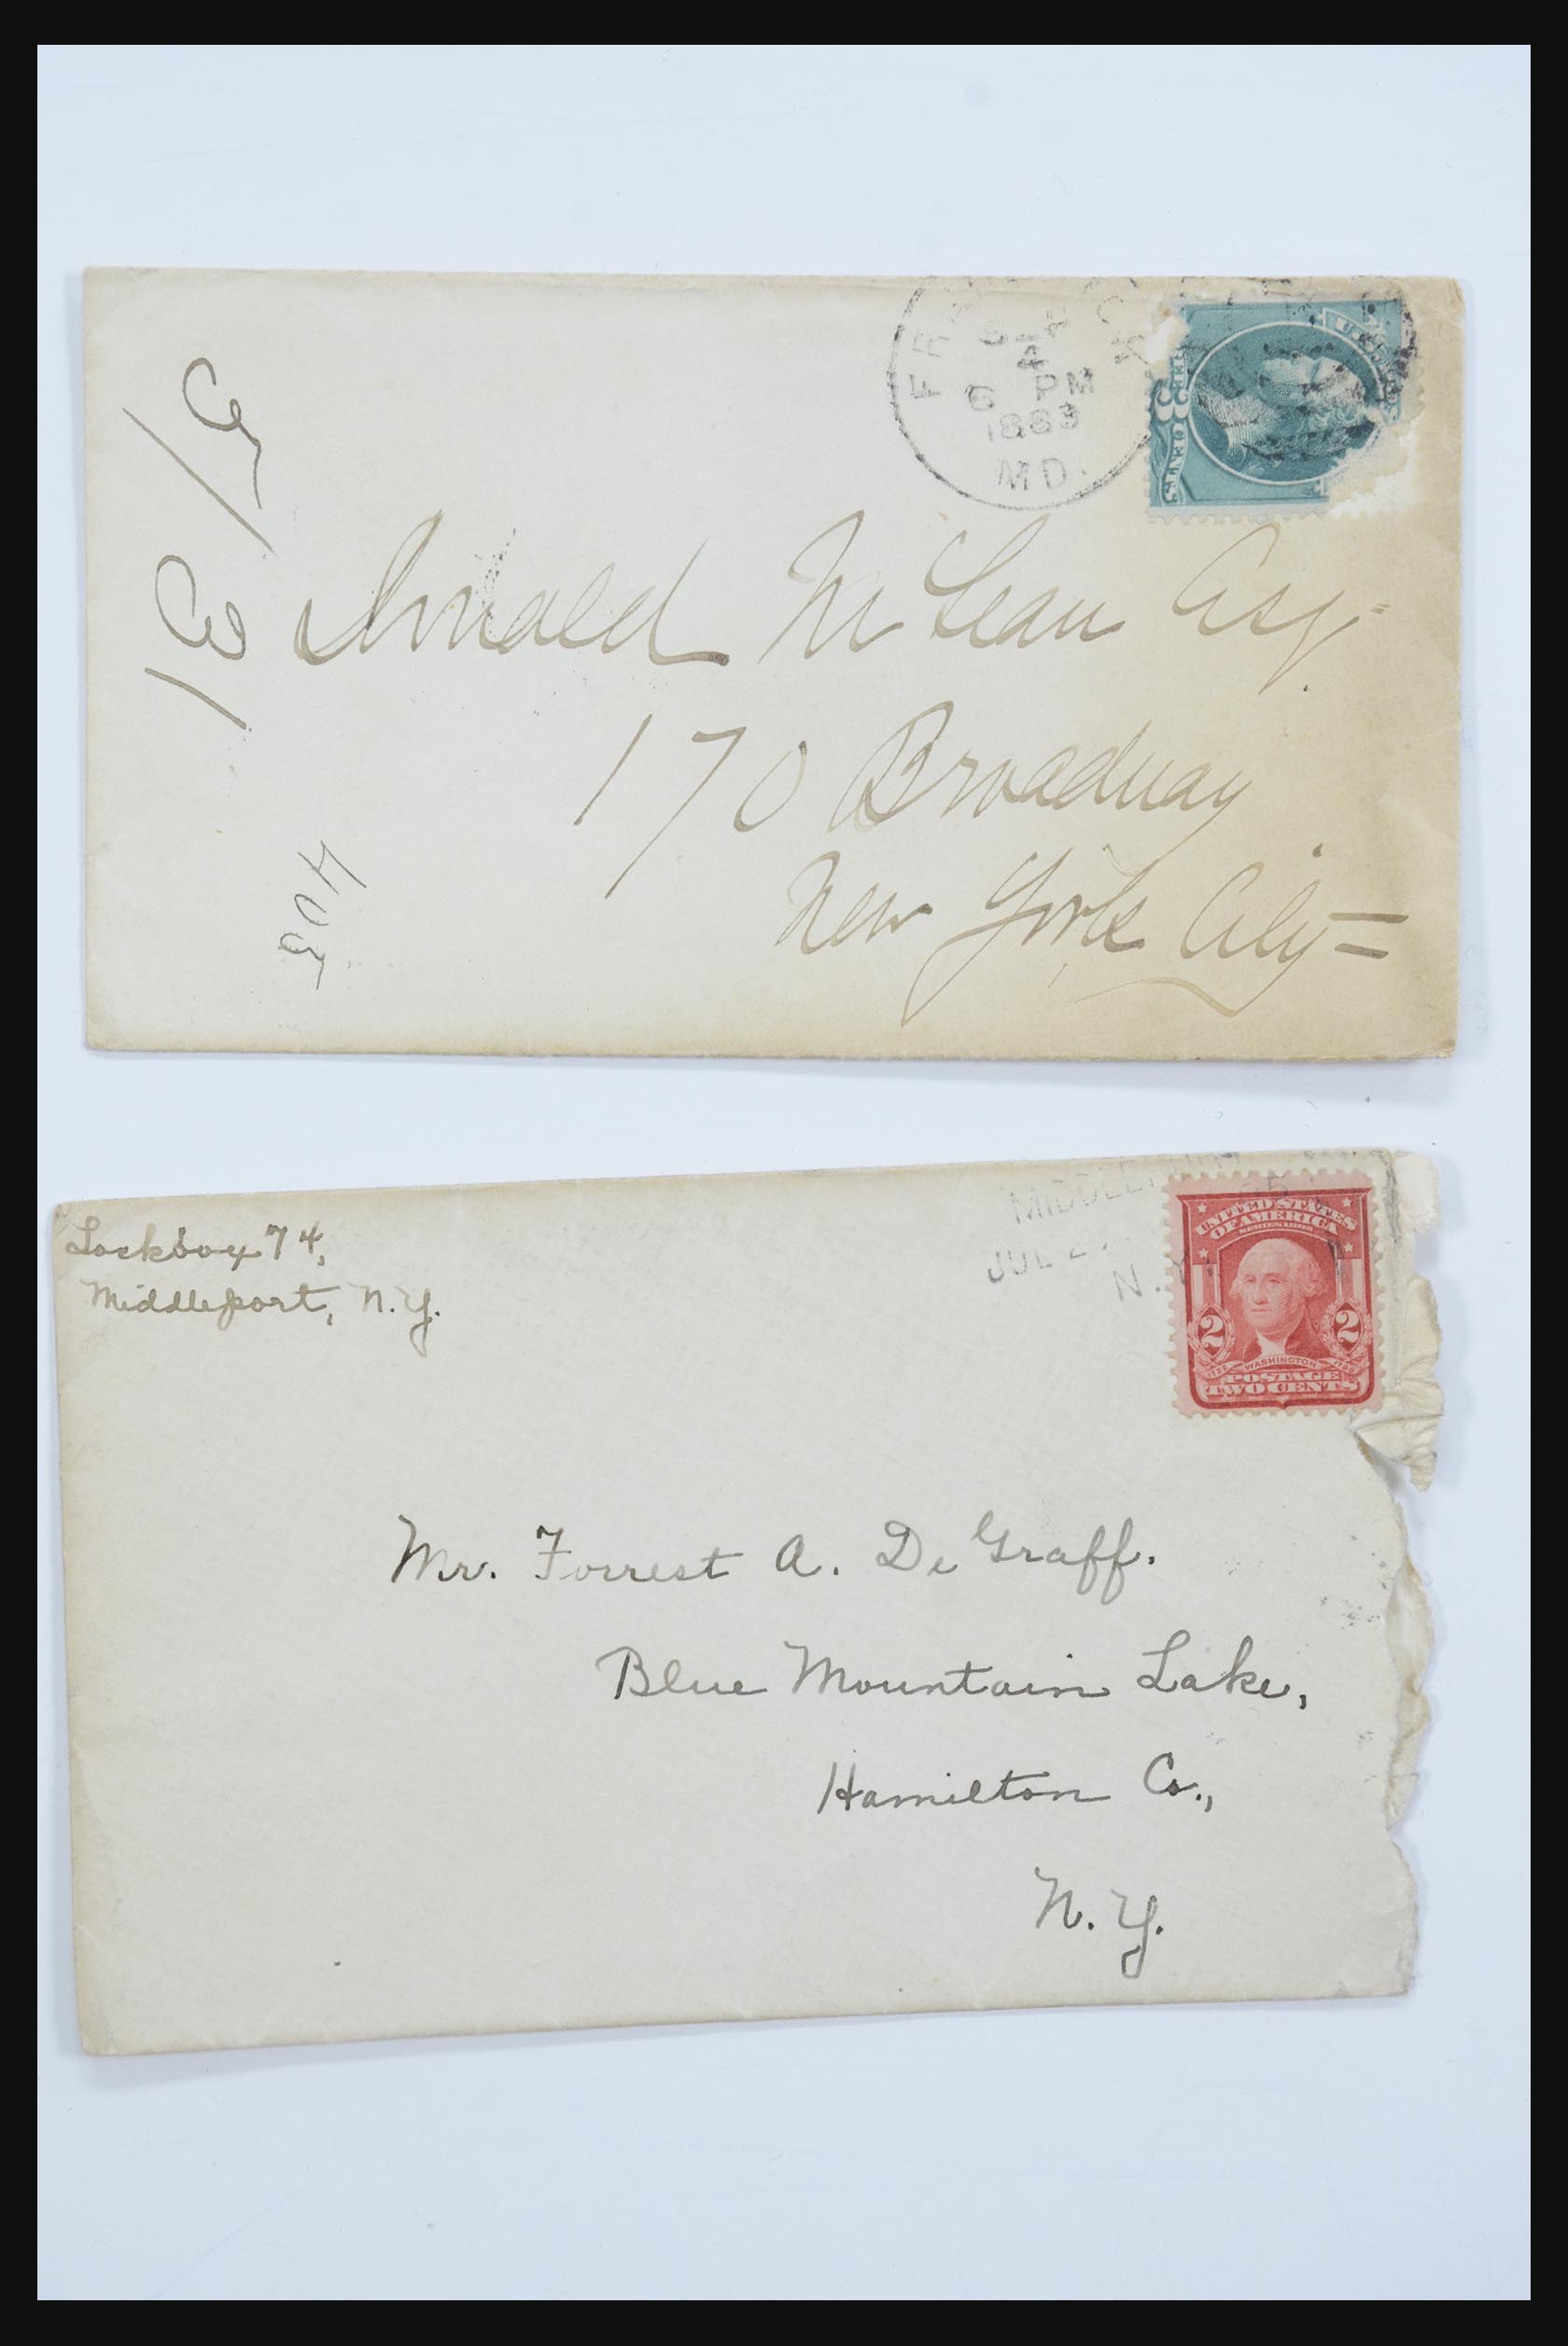 4
6 PM
1883
MD.
THREE 3 CENTS
Donald McLean Esq
170 Broadway
New York City =
Lockbox 74,
Middleport, N.Y.
JUL
N.Y.
UNITED STATES
OF AMERICA
SERIES 1902
2 2
1732 WASHINGTON 1799
POSTAGE
TWO CENTS
Mr. Forrest A. De Graff.
Blue Mountain Lake,
Hamilton Co.,
N.Y.